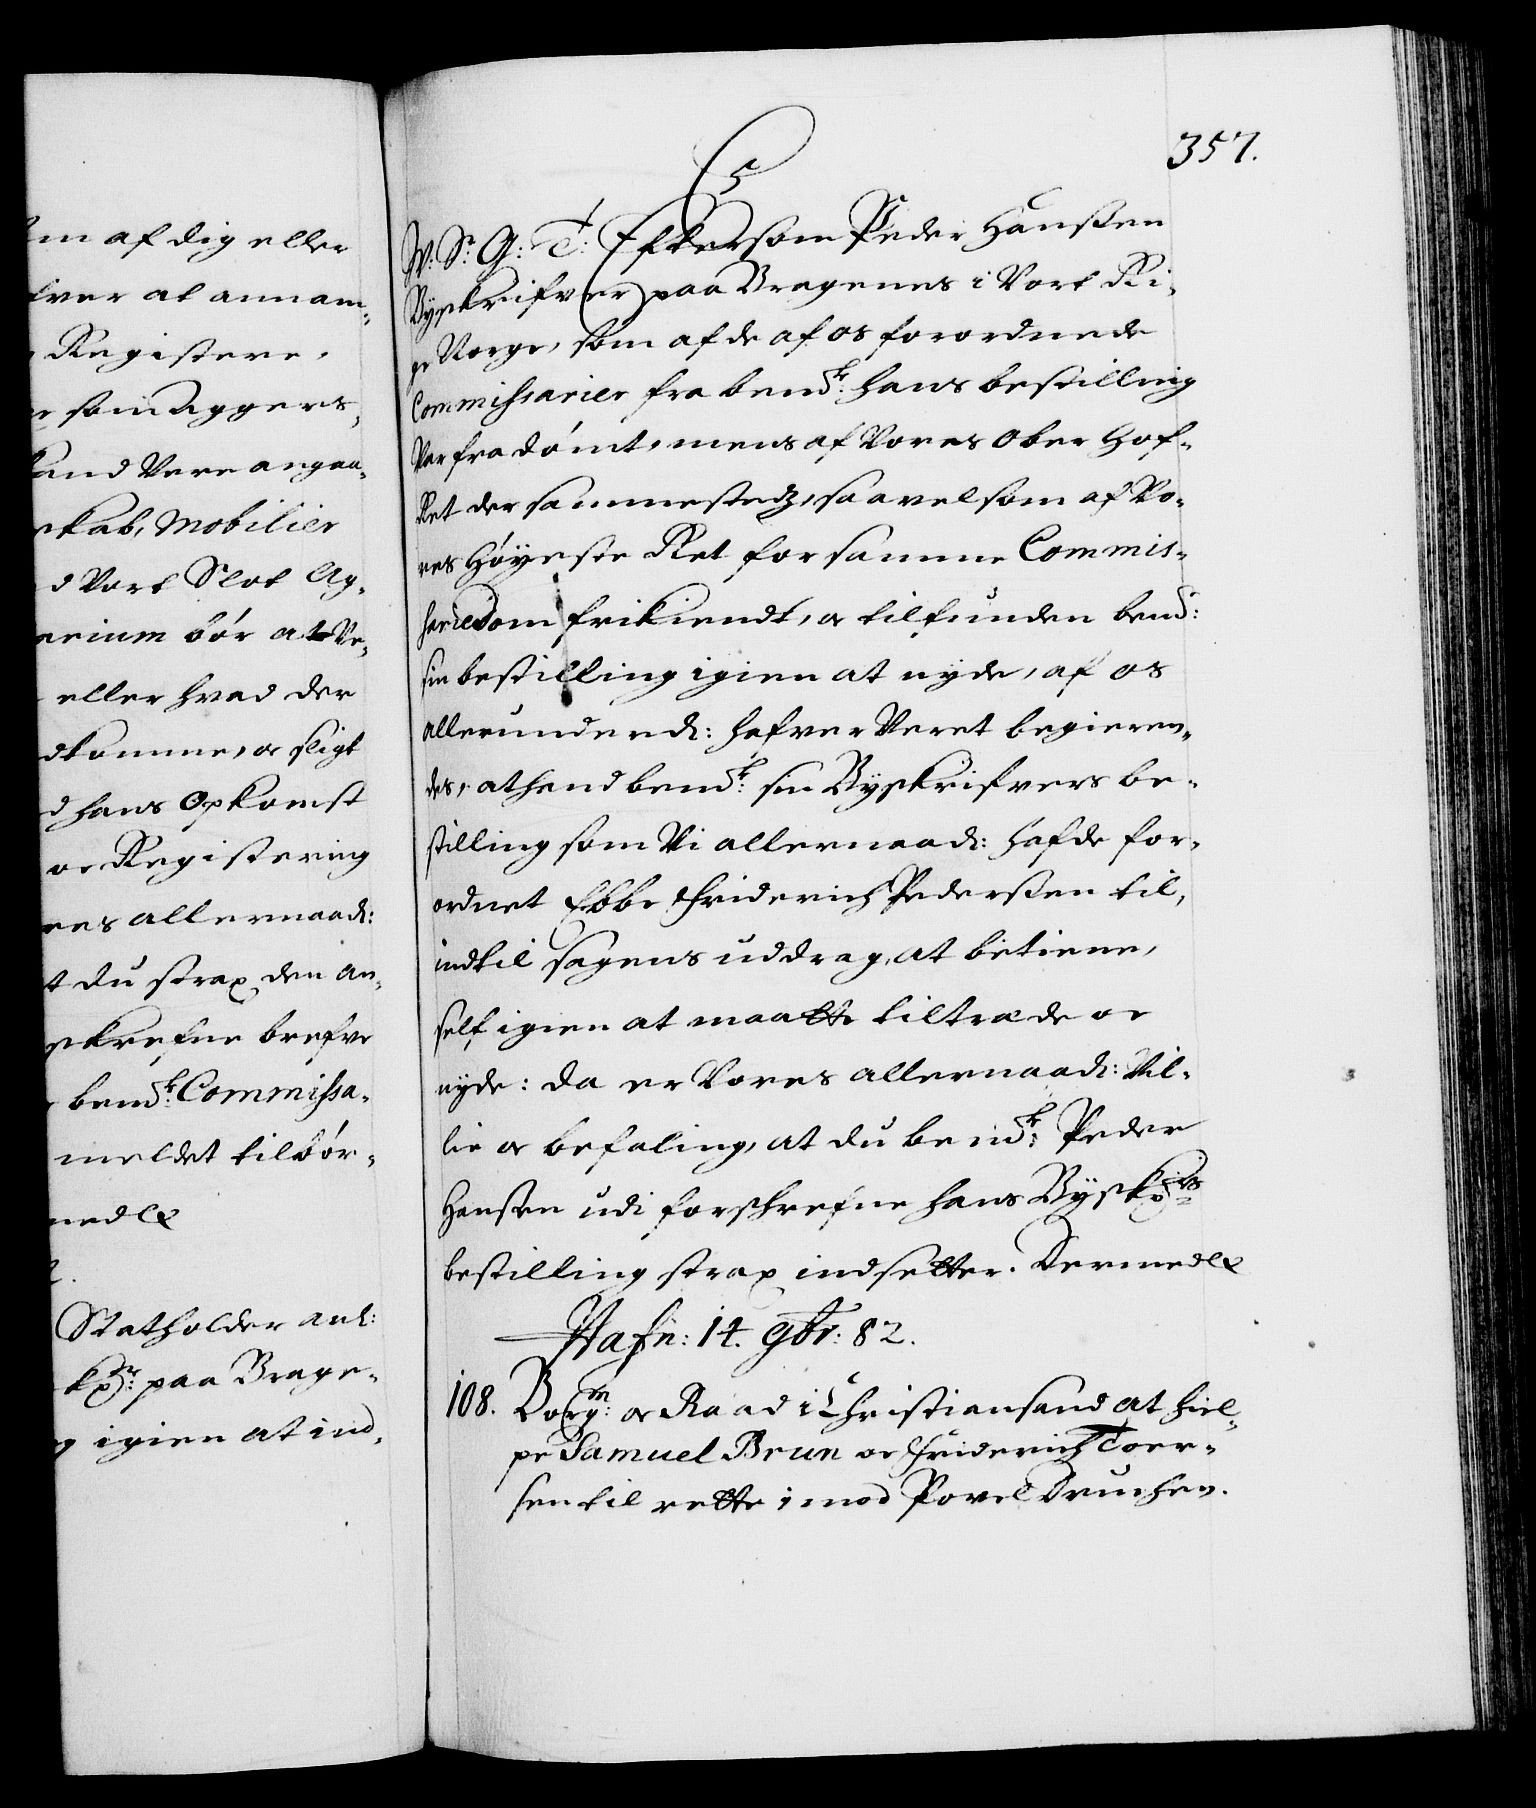 m af dig eller
fver at annam-
Registere,
som Aggers-
kand Vere angaa-
skab, Mobilier
d Vort Slot Ag-
arium bør at Ve-
eller hvad der
dkomme, oc sligt
d hans Opkomst
oc Registering
res allernaadl:
t du strax den an-
skrefne brefve
bem.te Commissa-
meldet tilbør-
medlx
2.
Statholder anl:
kr.r: paa Brage-
g igien at ind-
357.
C5
W: S: G: T: Eftersom Peder Hansen
Byskrifver paa Bragenes i Vort Ri-
ge Norge, som af de af os forordnede
Commissarier fra bemd.te: hans bestilling
Var fradømt, mens af Vores Ober Hof-
Ret der sammestedz, saavelsom af Vo-
res Høyeste Ret for samme Commis-
sariedom frikiendt, oc tilfunden bemd:
sin bestilling igien at nyde, af os
allerunderdl: hafver Veret begieren-
des, at hand bemd.te: sin Byskrifvers be-
stilling som Vi allernaadl: hafde for-
ordnet Ebbe Friderich Pedersen til,
indtil sagens uddrag, at betiene,
self igien at maatte tiltræde oc
nyde: da er Vores allernaadl: Vil-
lie oc befaling, at du bemd.te: Peder
Hansen udi forschrefne hans Byskr.rs
bestilling strax indsetter. Dermedlx
Hafn: 14. 9br: 82.
108. Borgm: oc Raad i Christiansand at hiel-
pe Samuel Brun oc Friderich Toer-
sen til rette imod Povel Truchen.